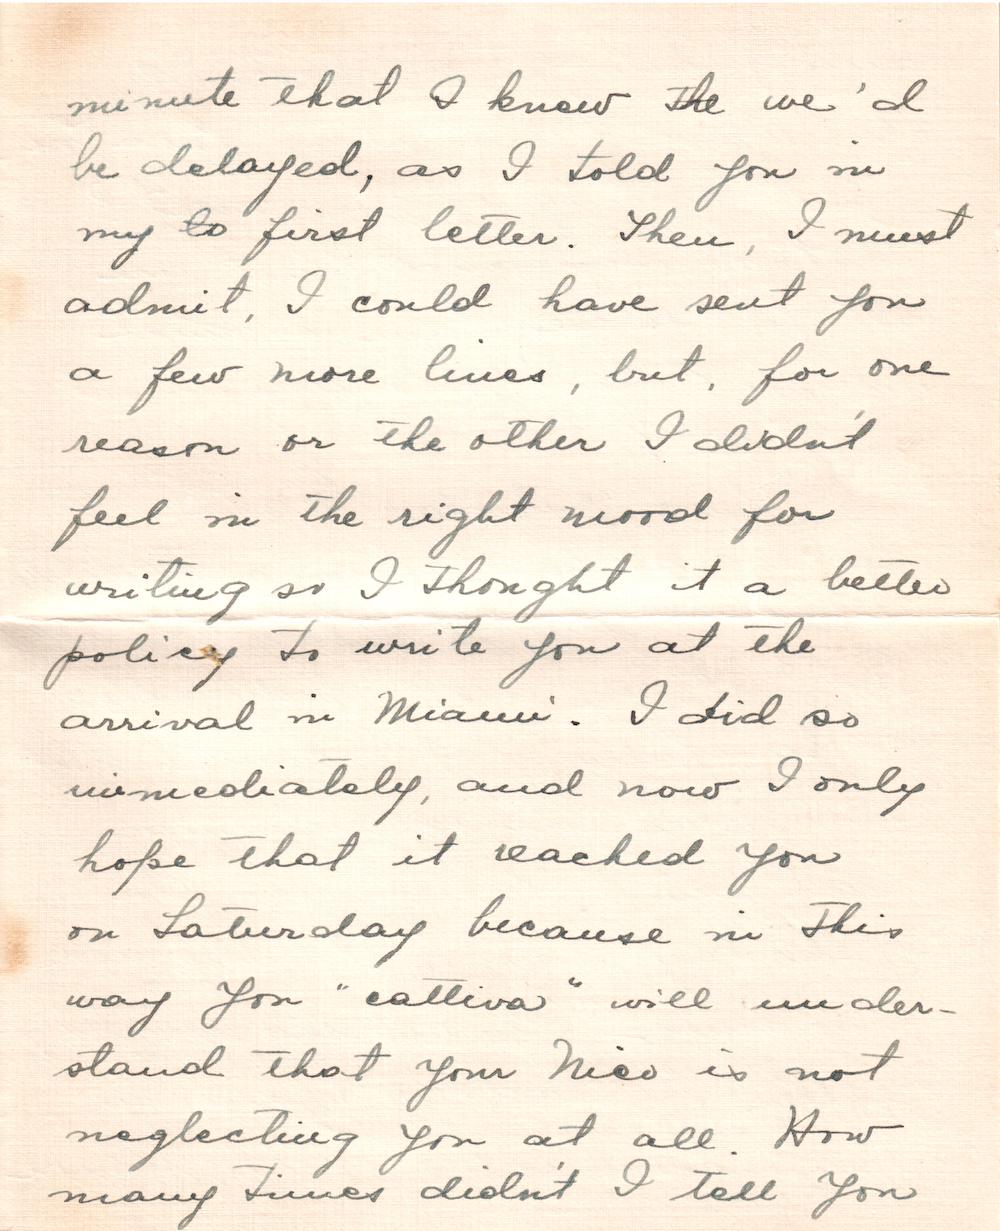 minute that I knew the we'd
be delayed, as I told you in
my to first letter. Then, I must
admit, I could have sent you
a few more lines, but, for one
reason or the other I didn't
feel in the right mood for
writing so I thought it a better
policy to write you at the
arrival in Miami. I did so
immediately, and now I only
hope that it reached you
on Saturday because in this
way you "cattiva" will under-
stand that your Nico is not
neglecting you at all. How
many times didn't I tell you